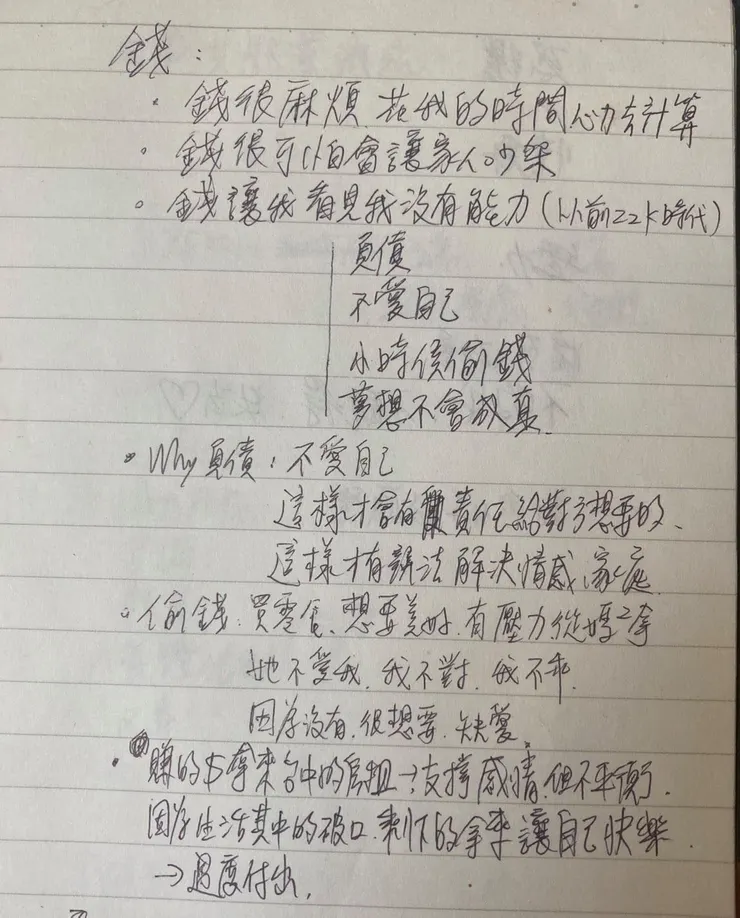 錢：
・錢很麻煩 花我的時間心力去計算
・錢很可怕會讓家人吵架
・錢讓我看見我沒有能力(以前22K時代)
負債
不愛自己
小時侯偷錢
夢想不會成真
・Why負債：不愛自己
這樣才會有責任給對方想要的、
這樣才有辦法解決情感、家庭
・偷錢：買零食、想要美好、有壓力從媽2拿
她不愛我、我不對、我不乖、
因為沒有、很想要、缺愛、
・賺的$拿來台中的房租→支撐感情、但不平衡、
因為生活其中的破口、剩下的拿來讓自己快樂、
→過度付出、